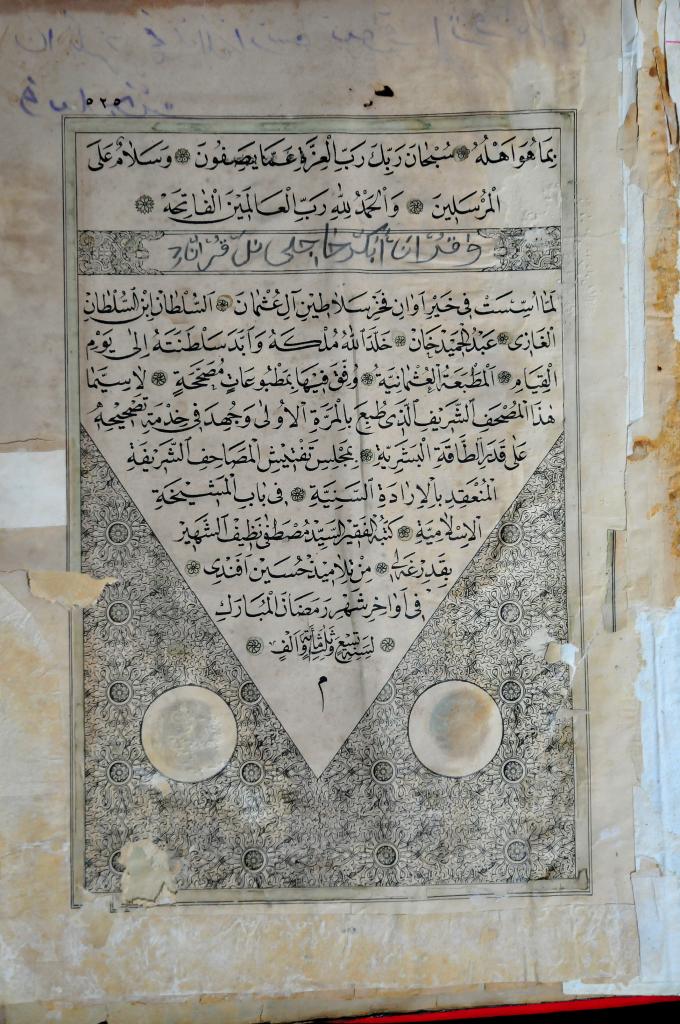 ٥٢٥
بِمَا هُوَ اَهْلُهُ ❁ سُبْحَانَ رَبِّكَ رَبِّ الْعِزَّةِ عَمَّا يَصِفُونَ ❁ وَسَلَامٌ عَلَى
الْمُرْسَلِينَ ❁ وَالْحَمْدُ لِلّٰهِ رَبِّ الْعَالَمِينَ الْفَاتِحَة ❁
لَمَّا اُسِّسَتْ فِى خَيْرِ اَوَانِ فَخْرِ سَلَاطِينِ آلِ عُثْمَانَ ❁ اَلسُّلْطَانِ ابْنِ السُّلْطَانِ
الْغَازِى ❁ عَبْدُ الْحَمِيدْ خَانْ ❁ خَلَّدَ اللّٰهُ مُلْكَهُ وَاَبَّدَ سَلْطَنَتَهُ اِلٰى يَوْمِ
الْقِيَامِ ❁ اَلْمَطْبَعَةُ الْعُثْمَانِيَّةُ ❁ وُفِّقَ فِيهَا بِمَطْبُوعَاتٍ مُصَحَّحَةٍ ❁ لَاسِيَّمَا
هٰذَا الْمُصْحَفِ الشَّرِيفِ الَّذِى طُبِعَ بِالْمَرَّةِ الْاُولٰى وَجُهِدَ فِى خِدْمَةِ تَصْحِيحِهِ
عَلٰى قَدَرِ الطَّاقَةِ الْبَشَرِيَّةِ ❁ بِمَجْلِسِ تَفْتِيشِ الْمَصَاحِفِ الشَّرِيفَةِ
الْمُنْعَقِدِ بِالْاِرَادَةِ السَّنِيَّةِ ❁ فِى بَابِ الْمَشِيخَةِ
الْاِسْلَامِيَّةِ ❁ كَتَبَهُ الْفَقِيرُ السَّيِّدْ مُصْطَفٰى نَظِيفُ الشَّهِيرْ
بِقَدِرْغَه لِى ❁ مِنْ تَلَامِيذِ حُسَيْنْ اَفَنْدِى ❁
فِى اَوَاخِرِ شَهْرِ رَمَضَانَ الْمُبَارَكِ
❁ لِسَنَةِ تِسْعٍ وَثَلٰثِمِائَةٍ وَاَلْفٍ ❁
م